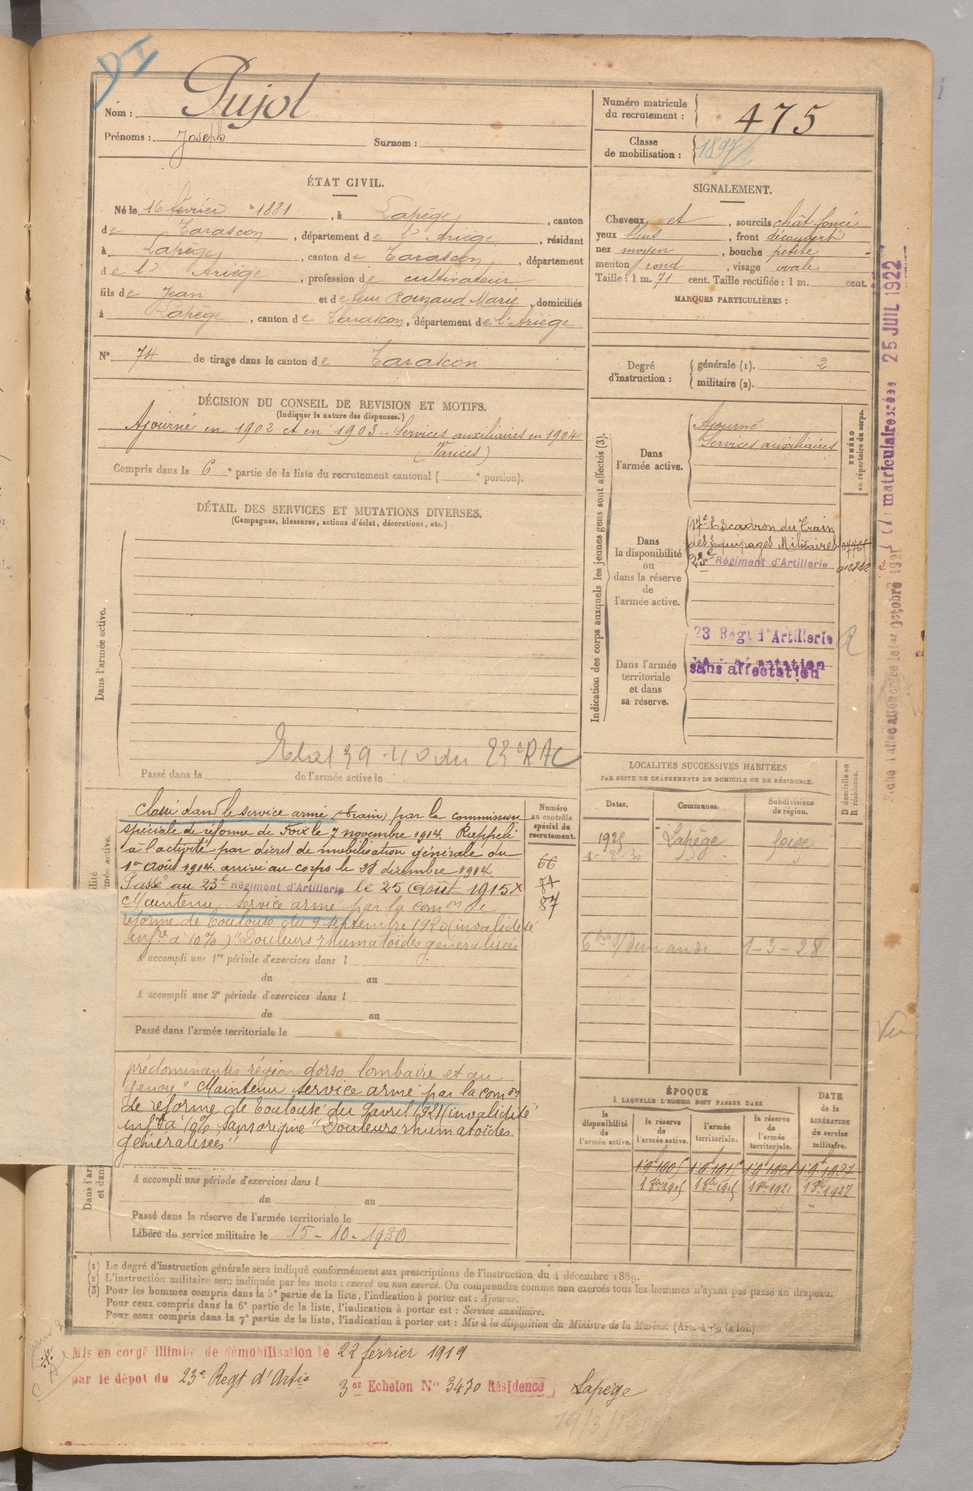 DI
Nom : Pujol
Prénoms : Joseph Surnom :
Numéro matricule du recrutement : 475
Classe de mobilisation :
ÉTAT CIVIL.
Né le 16 février 1881, à Lapège, canton
de Tarascon, département de l'Ariège, résidant
à Lapège, canton de Tarascon, département
de l'Ariège, profession de cultivateur
fils de Jean et de feue Rouzaud Marie, domiciliés
à Lapège, canton de Tarascon, département de l'Ariège
N° 74 de tirage dans le canton de Tarascon
SIGNALEMENT.
Cheveux et, sourcils chât. foncé
yeux bleus, front découvert
nez moyen, bouche petite
menton rond, visage ovale
Taille : 1 m. 71 cent. Taille rectifiée : 1 m. cent.
MARQUES PARTICULIÈRES :
Degré d'instruction : générale (1). 2
militaire (2).
DÉCISION DU CONSEIL DE REVISION ET MOTIFS.
(Indiquer la nature des dispenses.)
Ajourné en 1902 et en 1903 - Services auxiliaires en 1904
(Varices)
Compris dans la 6e partie de la liste du recrutement cantonal ( e portion).
DÉTAIL DES SERVICES ET MUTATIONS DIVERSES.
(Campagnes, blessures, actions d'éclat, décorations, etc.)
Dans l'armée active.
Passé dans la de l'armée active le
Indication des corps auxquels les jeunes gens sont affectés (3).
NUMÉRO au répertoire du corps.
Dans l'armée active.
Ajourné
Services auxiliaires
Dans la disponibilité ou dans la réserve de l'armée active.
17e Escadron du Train
des Equipages Militaires
23e Régiment d'Artillerie
Dans l'armée territoriale et dans sa réserve.
23 Régt d'Artillerie
sans affectation
R
25 JUIL 1922
Classé dans le service armé (Train) par la commission
spéciale de réforme de Foix le 7 novembre 1914. Rappelé
à l'activité par décret de mobilisation générale du
1er Août 1914. arrivé au corps le décembre 1914.
Passé au 23e Régiment d'Artillerie le 25 Août 1915 x
Maintenu service armé par la comon de
réforme de Toulouse du 9 septembre 1920 (invalidité
infre à 10%) "Douleurs rhumatoïdes généralisées
A accompli une 1re période d'exercices dans l
du au
A accompli une 2e période d'exercices dans l
du au
Passé dans l'armée territoriale le
Numéro au contrôle spécial du recrutement.
66
87
LOCALITÉS SUCCESSIVES HABITÉES
PAR SUITE DE CHANGEMENTS DE DOMICILE OU DE RÉSIDENCE.
Dates. Communes. Subdivisions de région.
D domicile ou R résidence.
Lapège
1-3-28
prédominantes région dorso lombaire et au
genou" Maintenu service armé par la comon
de réforme de Toulouse du avril 1921 (invalidité
infre à 10% sans origine "Douleurs rhumatoïdes
généralisées"
A accompli une période d'exercices dans l
du au
Passé dans la réserve de l'armée territoriale le
Libéré du service militaire le 15-10-1930
ÉPOQUE
À LAQUELLE L'HOMME DOIT PASSER DANS
la disponibilité de l'armée active. la réserve de l'armée active. l'armée territoriale. la réserve de l'armée territoriale.
DATE de la LIBÉRATION du service militaire.
(1) Le degré d'instruction générale sera indiqué conformément aux prescriptions de l'instruction du 4 décembre 1889.
(2) L'instruction militaire sera indiquée par les mots : exercé ou non exercé. On comprendra comme non exercés tous les hommes n'ayant pas passé au drapeau.
(3) Pour les hommes compris dans la 5e partie de la liste, l'indication à porter est : Ajourné.
Pour ceux compris dans la 6e partie de la liste, l'indication à porter est : Service auxiliaire.
Pour ceux compris dans la 7e partie de la liste, l'indication à porter est : Mis à la disposition du Ministre de la Marine.
Mis en congé illimité de démobilisation le 22 février 1919
par le dépôt du 23e Régt d'Artie 3er Echelon N° 3470 Résidence Lapège